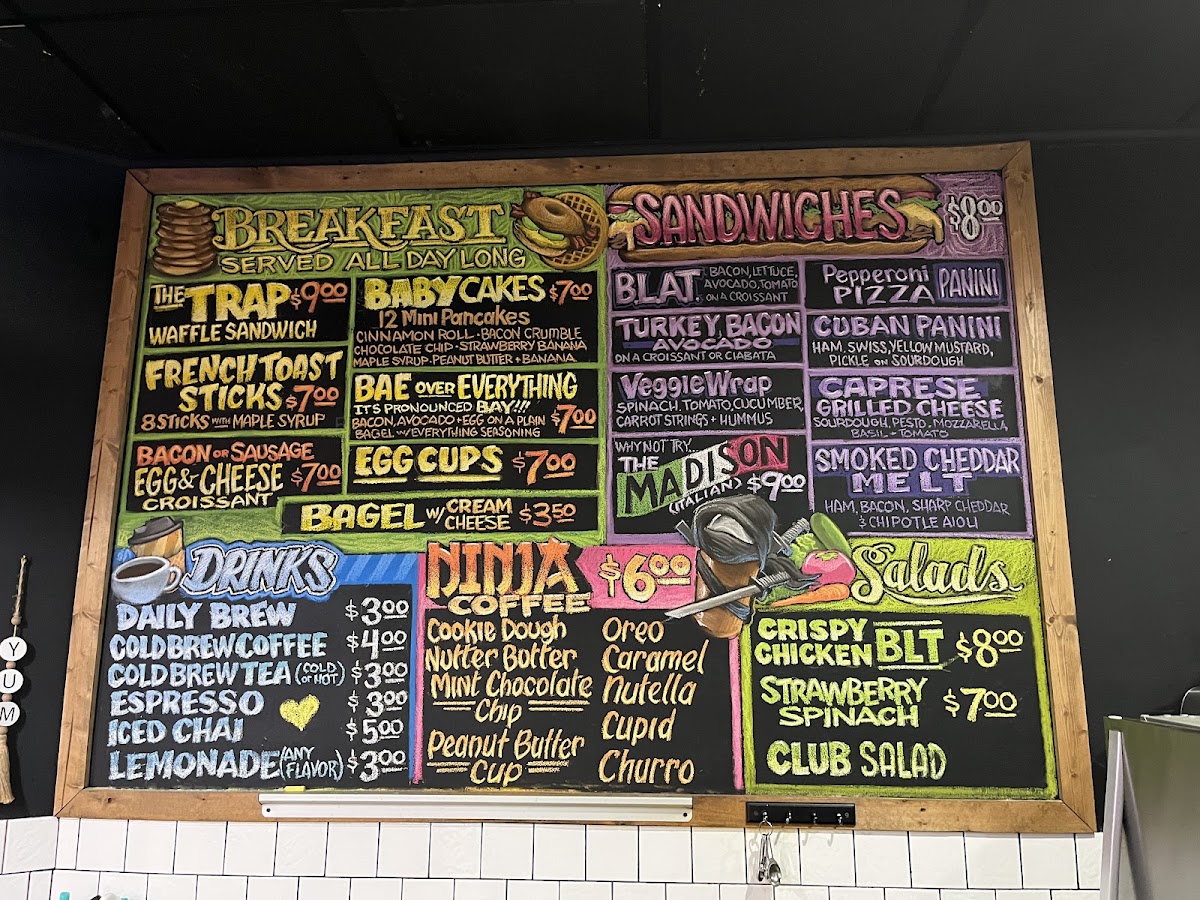 BREAKFAST
SERVED ALL DAY LONG
THE TRAP $9.00
WAFFLE SANDWICH
FRENCH TOAST
STICKS $7.00
8 STICKS WITH MAPLE SYRUP
BACON OR SAUSAGE
EGG & CHEESE $7.00
CROISSANT
BABY CAKES $7.00
12 Mini Pancakes
CINNAMON ROLL - BACON CRUMBLE
CHOCOLATE CHIP - STRAWBERRY BANANA
MAPLE SYRUP - PEANUT BUTTER + BANANA
BAE OVER EVERYTHING
IT'S PRONOUNCED BAY!!!
BACON, AVOCADO + EGG ON A PLAIN
BAGEL W/EVERYTHING SEASONING
$7.00
EGG CUPS $7.00
BAGEL W/ CREAM CHEESE $3.50
SANDWICHES $8.00
B.L.A.T. BACON, LETTUCE,
AVOCADO, TOMATO
ON A CROISSANT
TURKEY, BACON
AVOCADO
ON A CROISSANT OR CIABATA
Veggie Wrap
SPINACH, TOMATO, CUCUMBER,
CARROT STRINGS + HUMMUS
WHY NOT TRY...
THE MADISON
(ITALIAN) $9.00
Pepperoni
PIZZA PANINI
CUBAN PANINI
HAM, SWISS, YELLOW MUSTARD,
PICKLE ON SOURDOUGH
CAPRESE
GRILLED CHEESE
SOURDOUGH, PESTO, MOZZARELLA,
BASIL - TOMATO
SMOKED CHEDDAR
MELT
HAM, BACON, SHARP CHEDDAR
& CHIPOTLE AIOLI
DRINKS
DAILY BREW $3.00
COLD BREW COFFEE $4.00
COLD BREW TEA (COLD OR HOT) $3.00
ESPRESSO $3.00
ICED CHAI $5.00
LEMONADE (ANY FLAVOR) $3.00
NINJA
COFFEE
$6.00
Cookie Dough
Nutter Butter
Mint Chocolate
Chip
Peanut Butter
Cup
Oreo
Caramel
Nutella
Cupid
Churro
Salads
CRISPY
CHICKEN BLT $8.00
STRAWBERRY
SPINACH $7.00
CLUB SALAD
Y
U
M